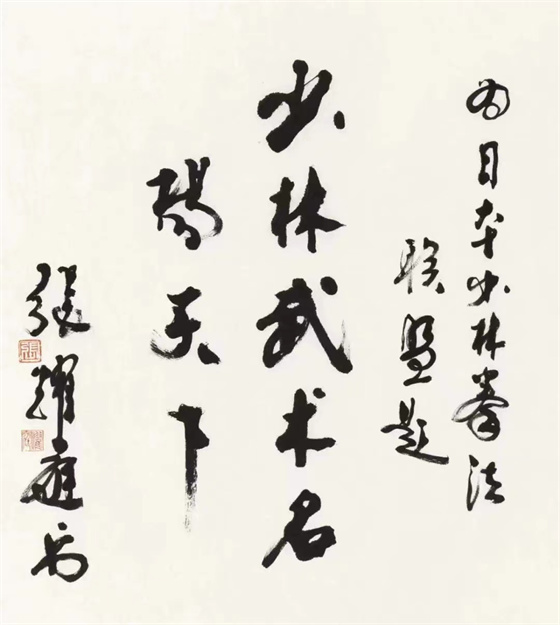 为日本少林拳法
联盟题
少林武术名
扬天下
张耀庭书
张